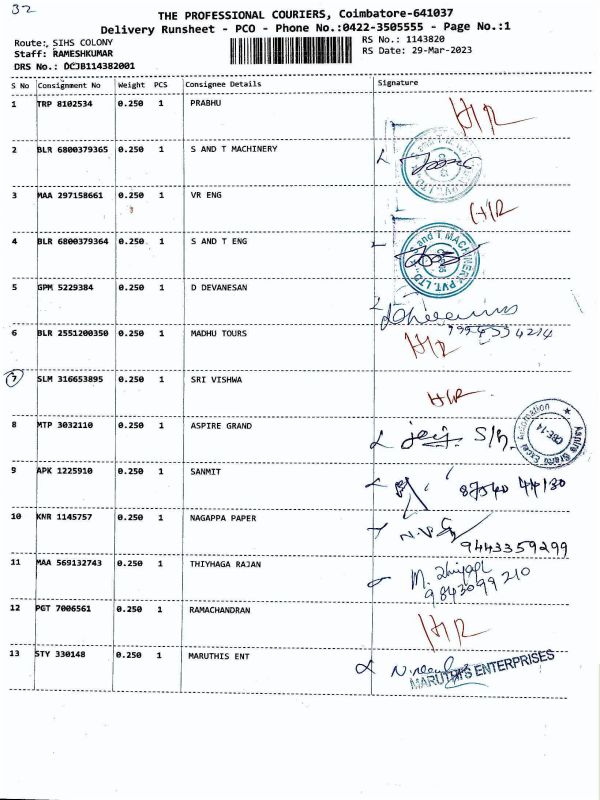 32
THE PROFESSIONAL COURIERS, Coimbatore-641037
Delivery Runsheet - PCO - Phone No.:0422-3505555 - Page No.:1
Route:, SIHS COLONY
RS No.: 1143820
Staff: RAMESHKUMAR
RS Date: 29-Mar-2023
DRS No.: DCJB114382001
S No Consignment No Weight PCS Consignee Details Signature
1 TRP 8102534 0.250 1 PRABHU H/R
2 BLR 6800379365 0.250 1 S AND T MACHINERY
3 MAA 297158661 0.250 1 VR ENG H/R
4 BLR 6800379364 0.250 1 S AND T ENG
S and T MACHINERY PVT. LTD.
5 GPM 5229384 0.250 1 D DEVANESAN
6 BLR 2551200350 0.250 1 MADHU TOURS H/R
7 SLM 316653895 0.250 1 SRI VISHWA H/R
8 MTP 3032110 0.250 1 ASPIRE GRAND
CBE-14
9 APK 1225910 0.250 1 SANMIT 87540 44130
10 KNR 1145757 0.250 1 NAGAPPA PAPER
9443359299
11 MAA 569132743 0.250 1 THIYHAGA RAJAN
9843099210
12 PGT 7006561 0.250 1 RAMACHANDRAN H/R
13 STY 330148 0.250 1 MARUTHIS ENT
MARUTHI'S ENTERPRISES